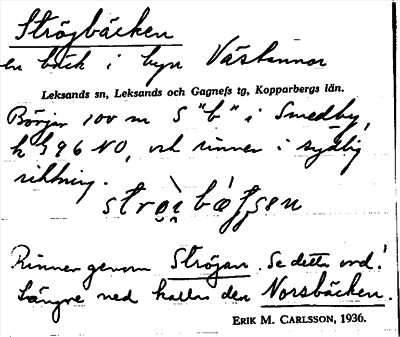 Ströjbäcken
en bäck i byn Västannor
Leksands sn, Leksands och Gagnefs tg, Kopparbergs län.
Börjar 100 m S "b" i Smedby,
h 396 NO, och rinner i sydlig
riktning.
Rinner genom Ströjan. Se detta ord!
Längre ned kallas den Norsbäcken.
ERIK M. CARLSSON, 1936.